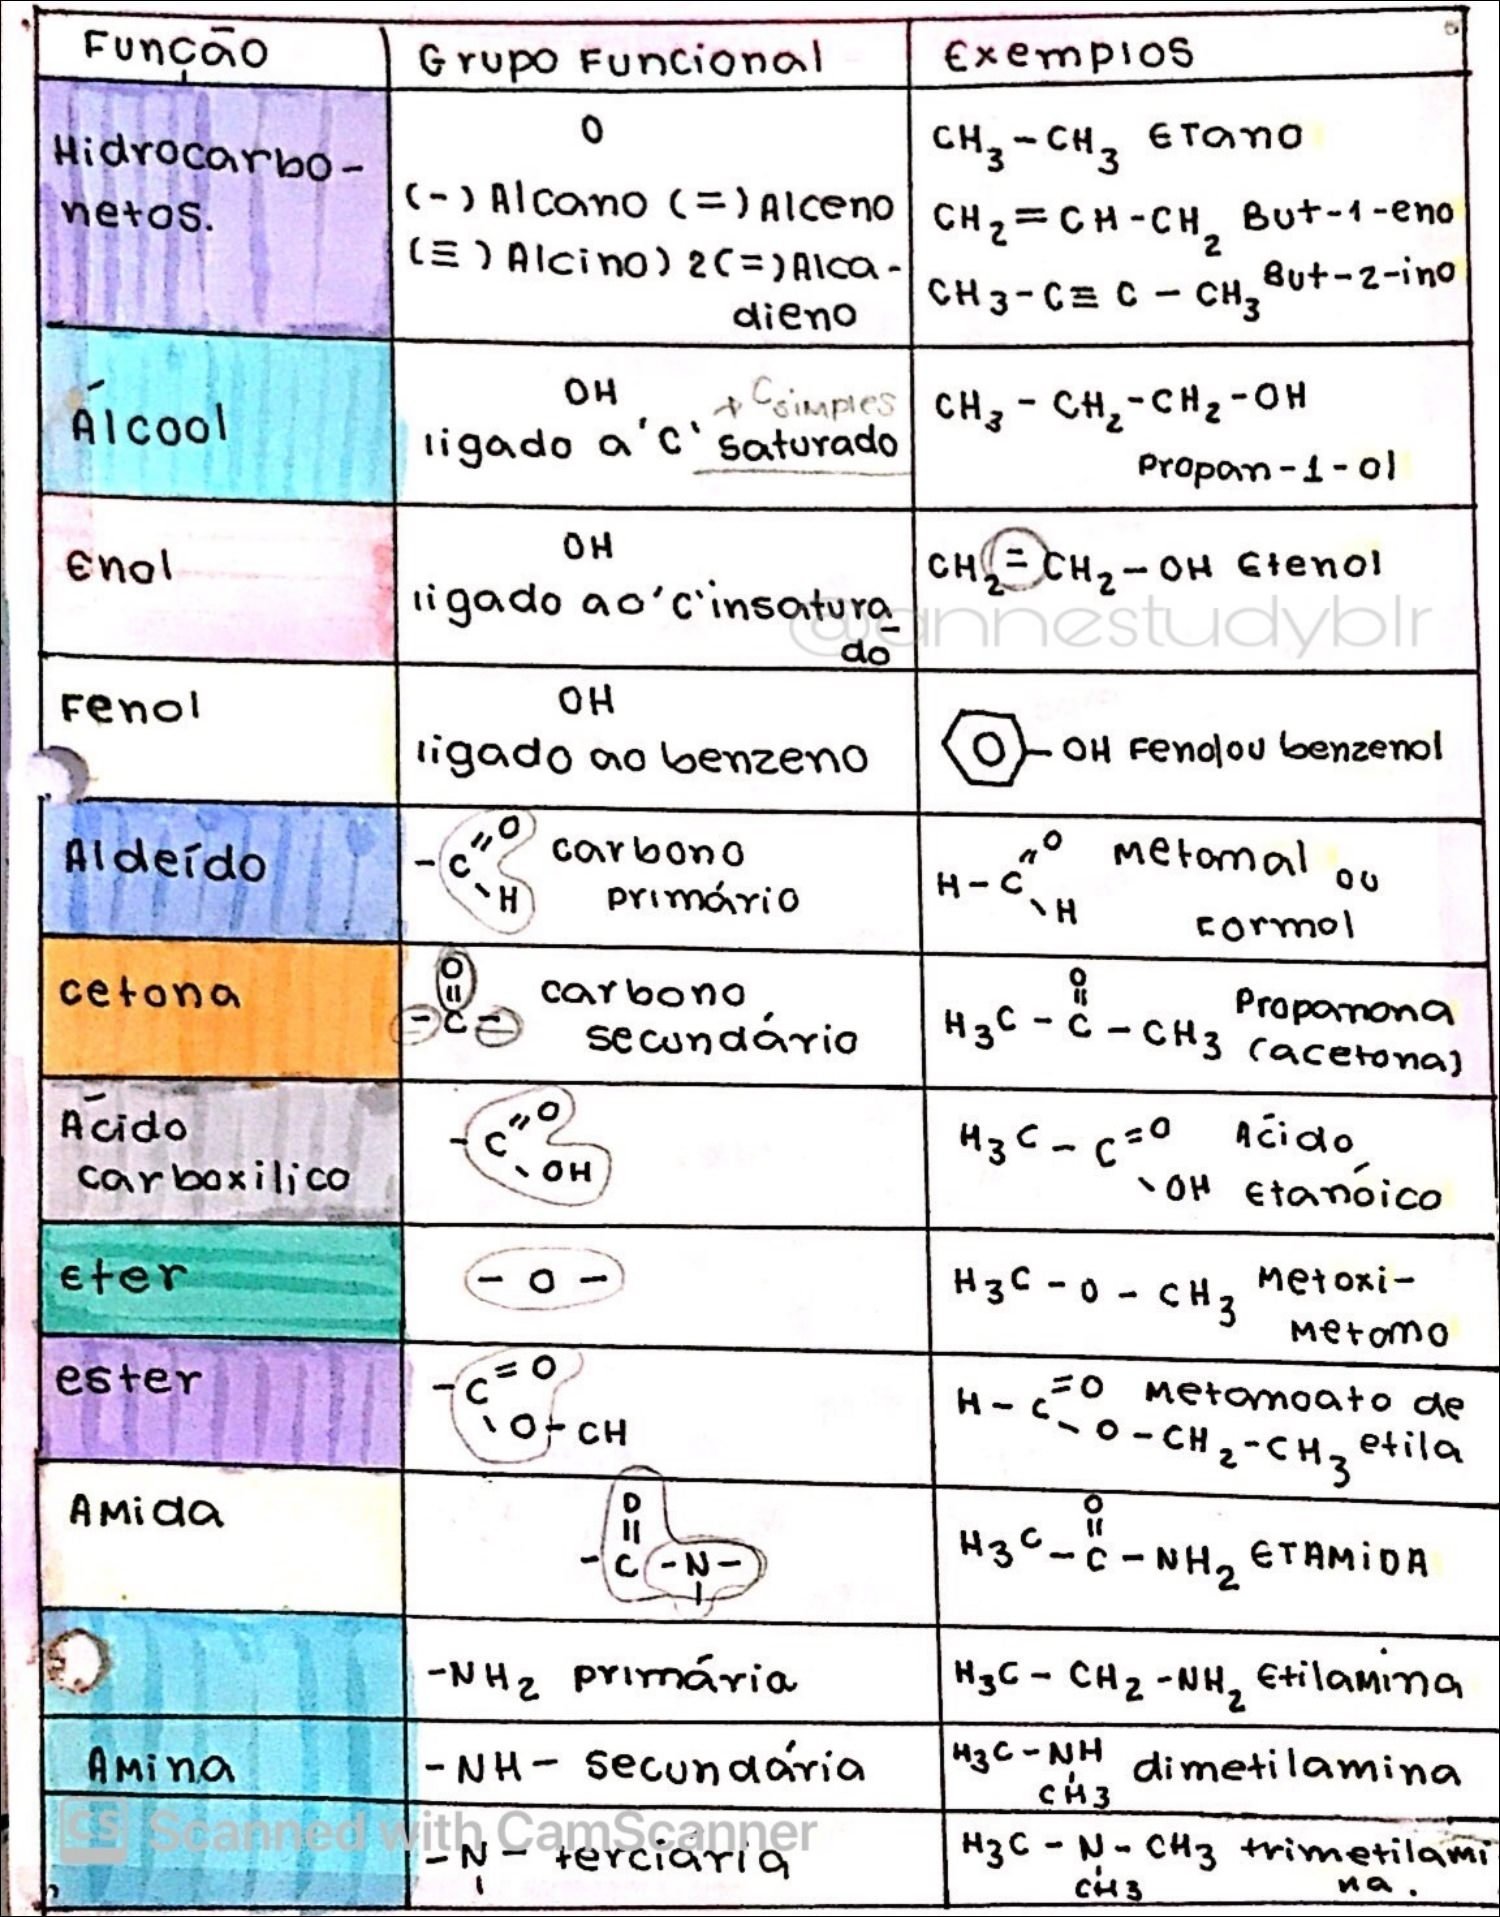 Função Grupo Funcional Exemplos
Hidrocarbo-
netos.
O
(-) Alcano (=) Alceno
(≡) Alcino) 2(=) Alca-
dieno
CH3-CH3 Etano
CH2=CH-CH2 But-1-eno
CH3-C≡C-CH3 But-2-ino
Álcool
OH
→ C simples
ligado a 'C' saturado
CH3-CH2-CH2-OH
Propan-1-ol
Enol
OH
ligado ao 'C' insatura-
do
CH2=CH2-OH Etenol
@annestudyblr
Fenol
OH
ligado ao benzeno
O -OH Fenol ou benzenol
Aldeído
-C=O carbono
-H primário
H-C=O Metanal ou
-H Formol
cetona
O
-C- carbono
secundário
O
H3C-C-CH3 Propanona
(acetona)
Ácido
carboxilico
-C=O
-OH
H3C-C=O Ácido
-OH Etanóico
Eter
-O-
H3C-O-CH3 Metoxi-
Metano
ester
-C=O
-O-CH
H-C=O Metanoato de
-O-CH2-CH3 etila
Amida
O
-C-N-
O
H3C-C-NH2 ETAMIDA
Amina
-NH2 primária
H3C-CH2-NH2 Etilamina
-NH- secundária
H3C-NH dimetilamina
CH3
-N- terciária
H3C-N-CH3 trimetilami
CH3 na.
CS Scanned with CamScanner